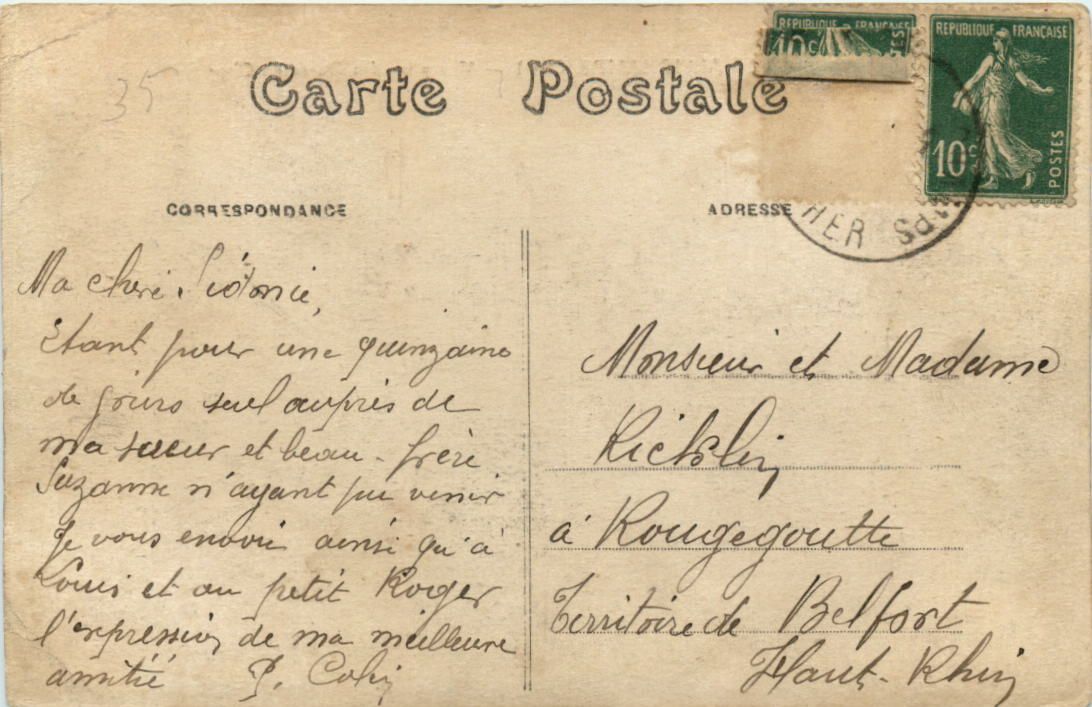 35
Carte Postale
REPUBLIQUE FRANÇAISE
10c POSTES
REPUBLIQUE FRANÇAISE
10c POSTES
HER
CORRESPONDANCE
ADRESSE
Ma chère Sidonie,
Etant pour une quinzaine
de jours seul auprès de
ma sœur et beau-frère
Suzanne n'ayant pu venir
Je vous envoie ainsi qu'à
Louis et au petit Roger
l'expression de ma meilleure
amitié P. Colin
Monsieur et Madame
à Rougegoutte
Territoire de Belfort
Haut-Rhin